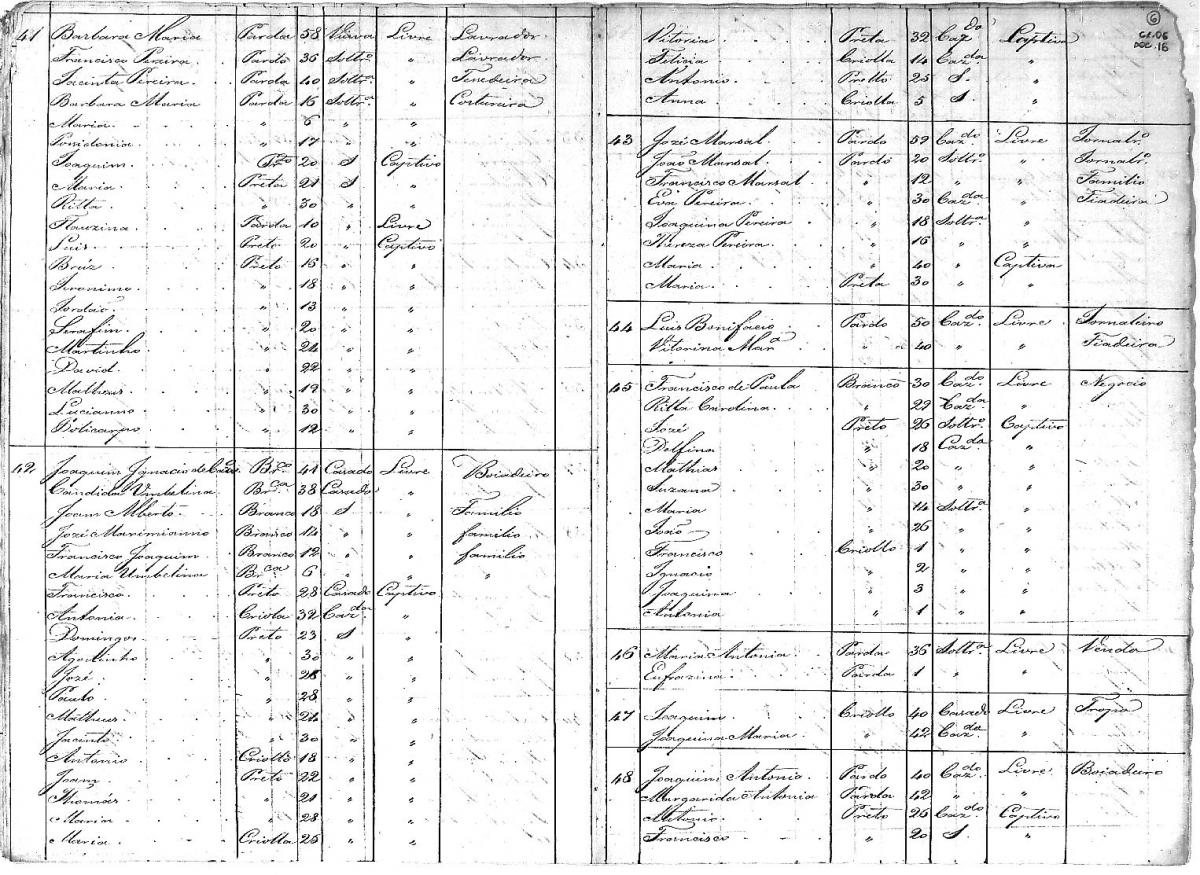 41 Barbara Maria Parda 58 Viuva Livre Lavrador
Francisco Pereira Pardo 36 Soltrº " Lavrador
Jacinta Pereira Parda 40 Soltrª " Tecedeira
Barbara Maria Parda 16 Soltrª " Costureira
Maria " 6 " "
" 17 " "
Joaquim 20 S Captivo
Maria Preta 21 S "
Ritta " 30 " "
Flauzina Parda 10 " Livre
Luis Preto 20 " Captivo
Bráz Preto 16 " "
Jeronimo " 18 " "
Jordão " 13 " "
Serafim " 20 " "
Martinho " 24 " "
David " 22 " "
Matheus " 19 " "
Lucianno " 30 " "
Policarpo " 12 " "
42 Joaquim Ignacio de Brco 41 Casado Livre Boiadeiro
Candida Umbelina Brca 38 Casado "
Joam Alberto Branco 18 S " Familio
Jozé Maximianno Branco 14 " " familio
Francisco Joaquim Branco 12 " " familio
Maria Umbelina Brca 6 " " "
Francisco Preto 28 Casado Captivo
Antonia Criola 32 Cazda "
Domingos Preto 23 S "
Agostinho " 30 " "
Jozé " 28 " "
Paulo " 28 " "
Matheus " 24 " "
Jacinto " 30 " "
Antonio Criollo 18 " "
Joam Preto 22 " "
Thomás " 21 " "
Maria " 28 " "
Maria Criolla 26 " "
6
CX.06
DOC.16
Vitoria Preta 32 Cazdo Captivo
Felicia Criolla 14 Cazda "
Antonio Pretto 25 S "
Anna Criolla 5 S "
43 Jozé Marsal Pardo 59 Cazdo Livre Jornalrº
João Marsal Pardo 20 Soltrº " Jornalrº
Francisco Marsal " 12 " " Familio
Eva Pereira " 30 Cazda " Fiadeira
Joaquina Pereira " 18 Soltrª
Thereza Pereira " 16 " "
Maria " 40 " Captiva
Maria Preta 30 " "
44 Luis Bonifacio Pardo 50 Cazdo Livre Jornaleiro
Vitorina Marª " 40 " " Fiadeira
45 Francisco de Paula Branco 30 Cazdo Livre Negocio
Ritta Carolina " 29 Cazda "
Jozé Preto 26 Soltrº Captivo
Delfina " 18 Cazda "
Mathias " 20 " "
Suzana " 30 " "
Maria " 14 Soltrª "
João " 26 " "
Francisco Criollo 1 " "
Ignacio " 2 " "
Joaquina " 3 " "
Antonia " 1 " "
46 Maria Antonia Parda 36 Soltrª Livre Venda
Eufrazina Parda 1 " "
47 Joaquim Criollo 40 Casado Livre Tropa
Joaquina Maria " 42 Cazda "
48 Joaquim Antonio Pardo 40 Cazdo Livre Boiadeiro
Margarida Antonia Parda 42 " "
Antonio Preto 26 Cazdo Captivo
Francisco " 20 S "